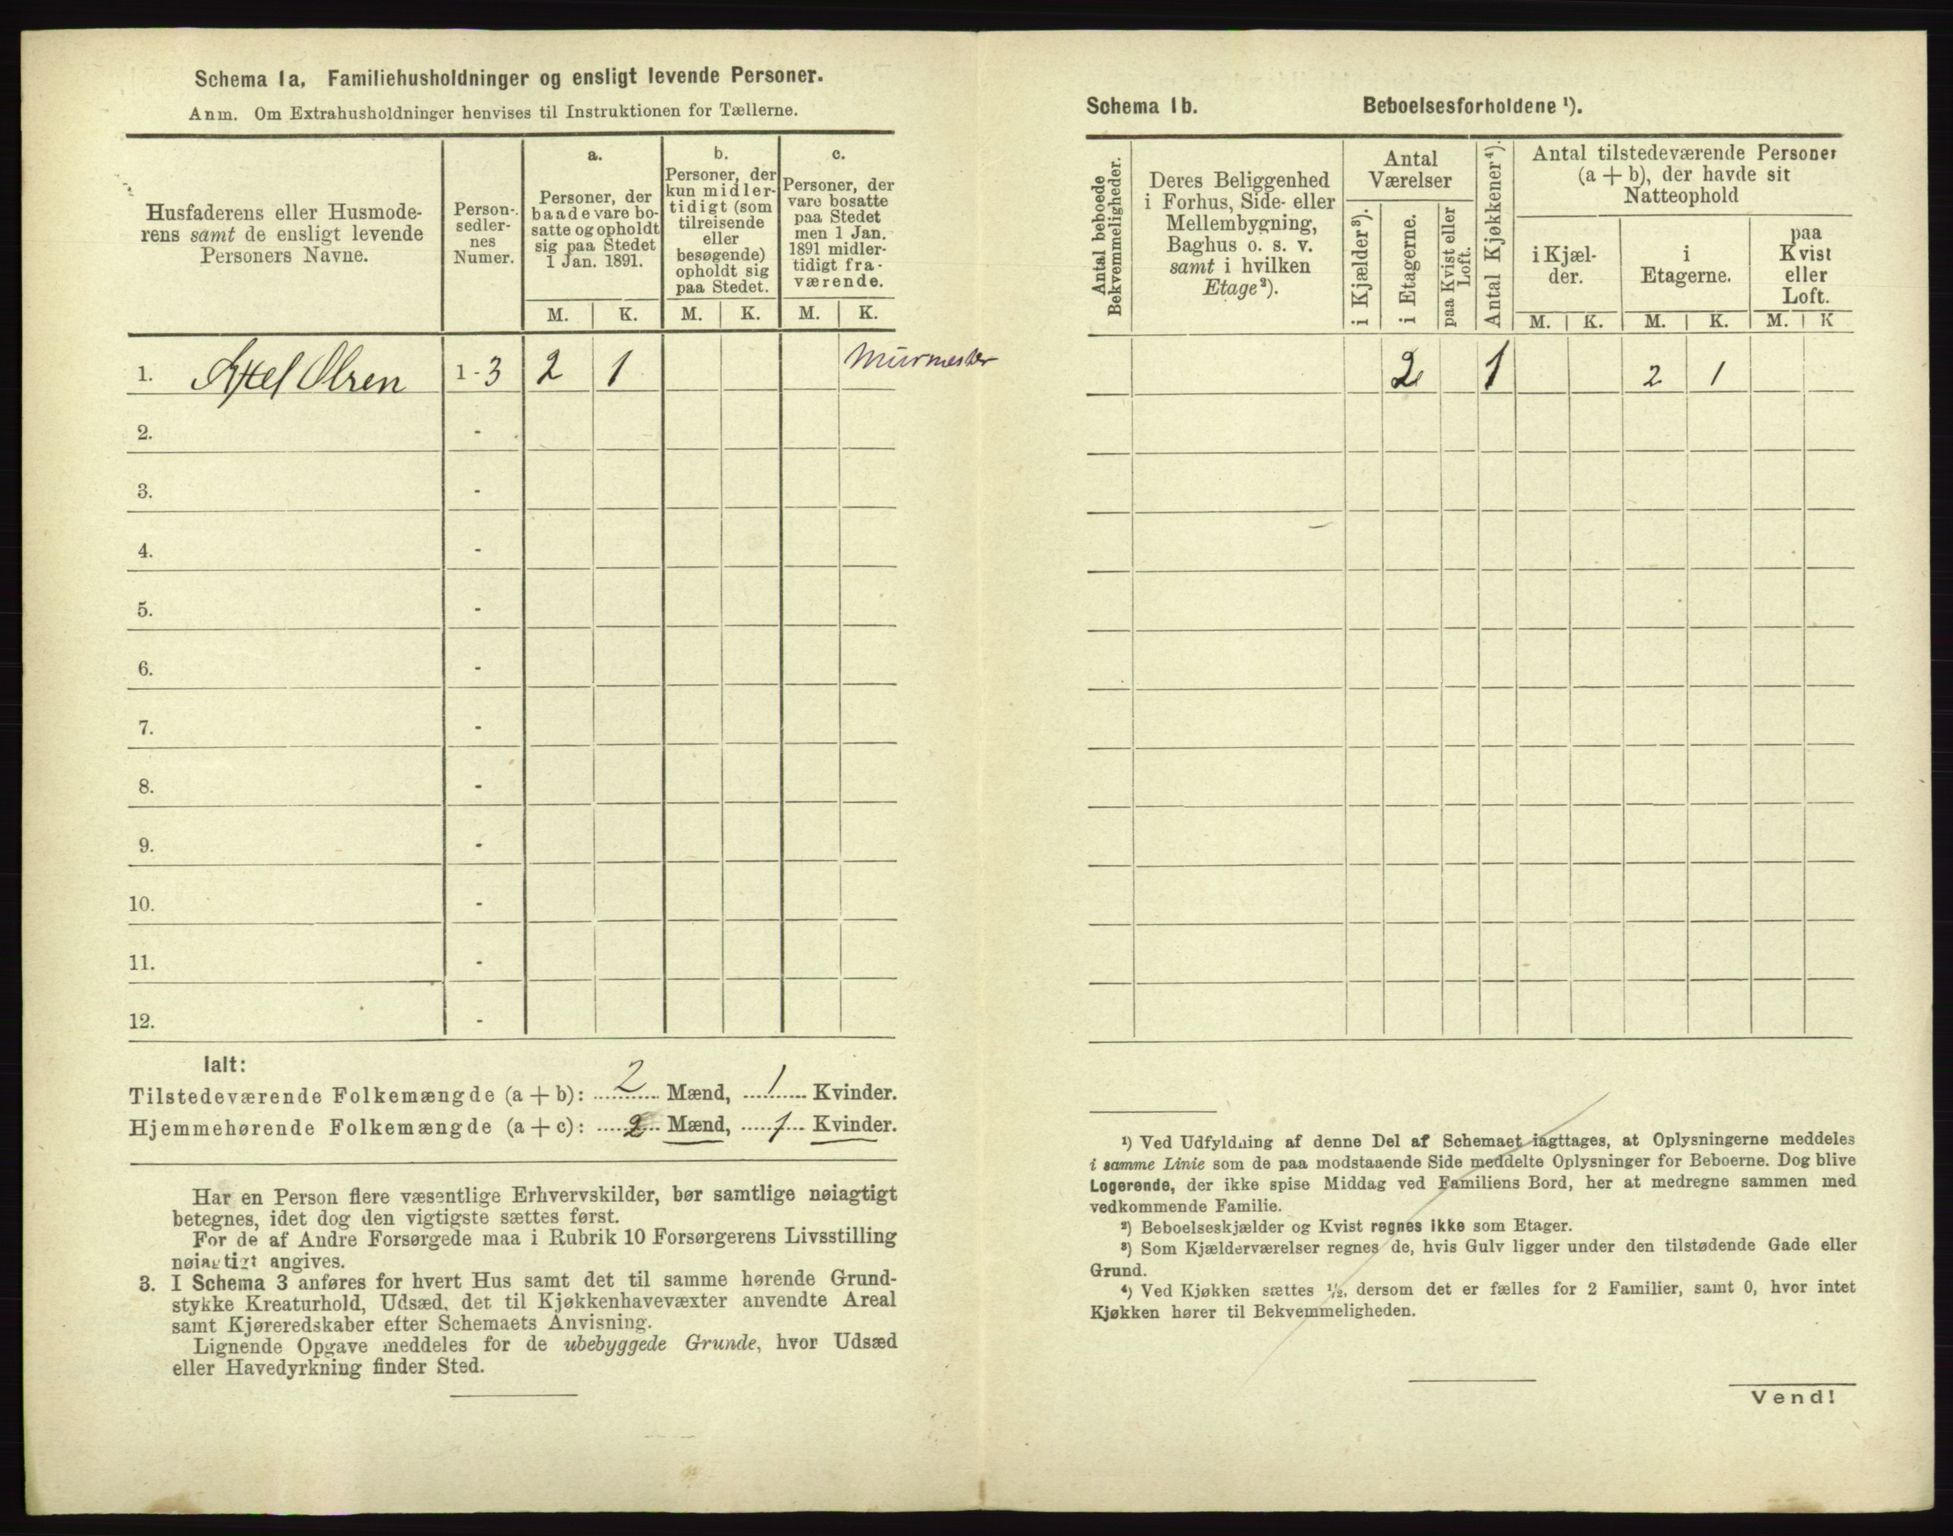 Schema 1a. Familiehusholdninger og ensligt levende Personer.
Anm. Om Extrahusholdninger henvises til Instruktionen for Tællerne.
Husfaderens eller Husmode-
rens samt de ensligt levende
Personers Navne.
Person-
sedler-
nes
Numer.
a.
Personer, der
baade vare bo-
satte og opholdt
sig paa Stedet
1 Jan. 1891.
b.
Personer, der
kun midler-
tidigt (som
tilreisende
eller
besøgende)
opholdt sig
paa Stedet.
c.
Personer, der
vare bosatte
paa Stedet
men 1 Jan.
1891 midler-
tidigt fra-
værende.
M. K. M. K. M. K.
1. Axel Olsen 1 - 3 2 1 Murmester
2. -
3. -
4. -
5. -
6. -
7. -
8. -
9. -
10. -
11. -
12. -
Ialt:
Tilstedeværende Folkemængde (a + b): 2 Mænd, 1 Kvinder.
Hjemmehørende Folkemængde (a + c): 2 Mænd, 1 Kvinder.
Har en Person flere væsentlige Erhvervskilder, bør samtlige nøiagtigt
betegnes, idet dog den vigtigste sættes først.
For de af Andre Forsørgede maa i Rubrik 10 Forsørgerens Livsstilling
nøiagtigt angives.
3. I Schema 3 anføres for hvert Hus samt det til samme hørende Grund-
stykke Kreaturhold, Udsæd, det til Kjøkkenhavevæxter anvendte Areal
samt Kjøreredskaber efter Schemaets Anvisning.
Lignende Opgave meddeles for de ubebyggede Grunde, hvor Udsæd
eller Havedyrkning finder Sted.
Schema 1b. Beboelsesforholdene ¹).
Antal beboede
Bekvemmeligheder.
Deres Beliggenhed
i Forhus, Side- eller
Mellembygning,
Baghus o. s. v.
samt i hvilken
Etage²).
Antal
Værelser
i Kjælder³).
i Etagerne.
paa Kvist eller
Loft.
Antal Kjøkkener⁴).
Antal tilstedeværende Personer
(a + b), der havde sit
Natteophold
i Kjæl-
der.
i
Etagerne.
paa
Kvist
eller
Loft.
M. K. M. K. M. K
2 1 2 1
¹) Ved Udfyldning af denne Del af Schemaet iagttages, at Oplysningerne meddeles
i samme Linie som de paa modstaaende Side meddelte Oplysninger for Beboerne. Dog blive
Logerende, der ikke spise Middag ved Familiens Bord, her at medregne sammen med
vedkommende Familie.
²) Beboelseskjælder og Kvist regnes ikke som Etager.
³) Som Kjælderværelser regnes de, hvis Gulv ligger under den tilstødende Gade eller
Grund.
⁴) Ved Kjøkken sættes ½, dersom det er fælles for 2 Familier, samt 0, hvor intet
Kjøkken hører til Bekvemmeligheden.
Vend!